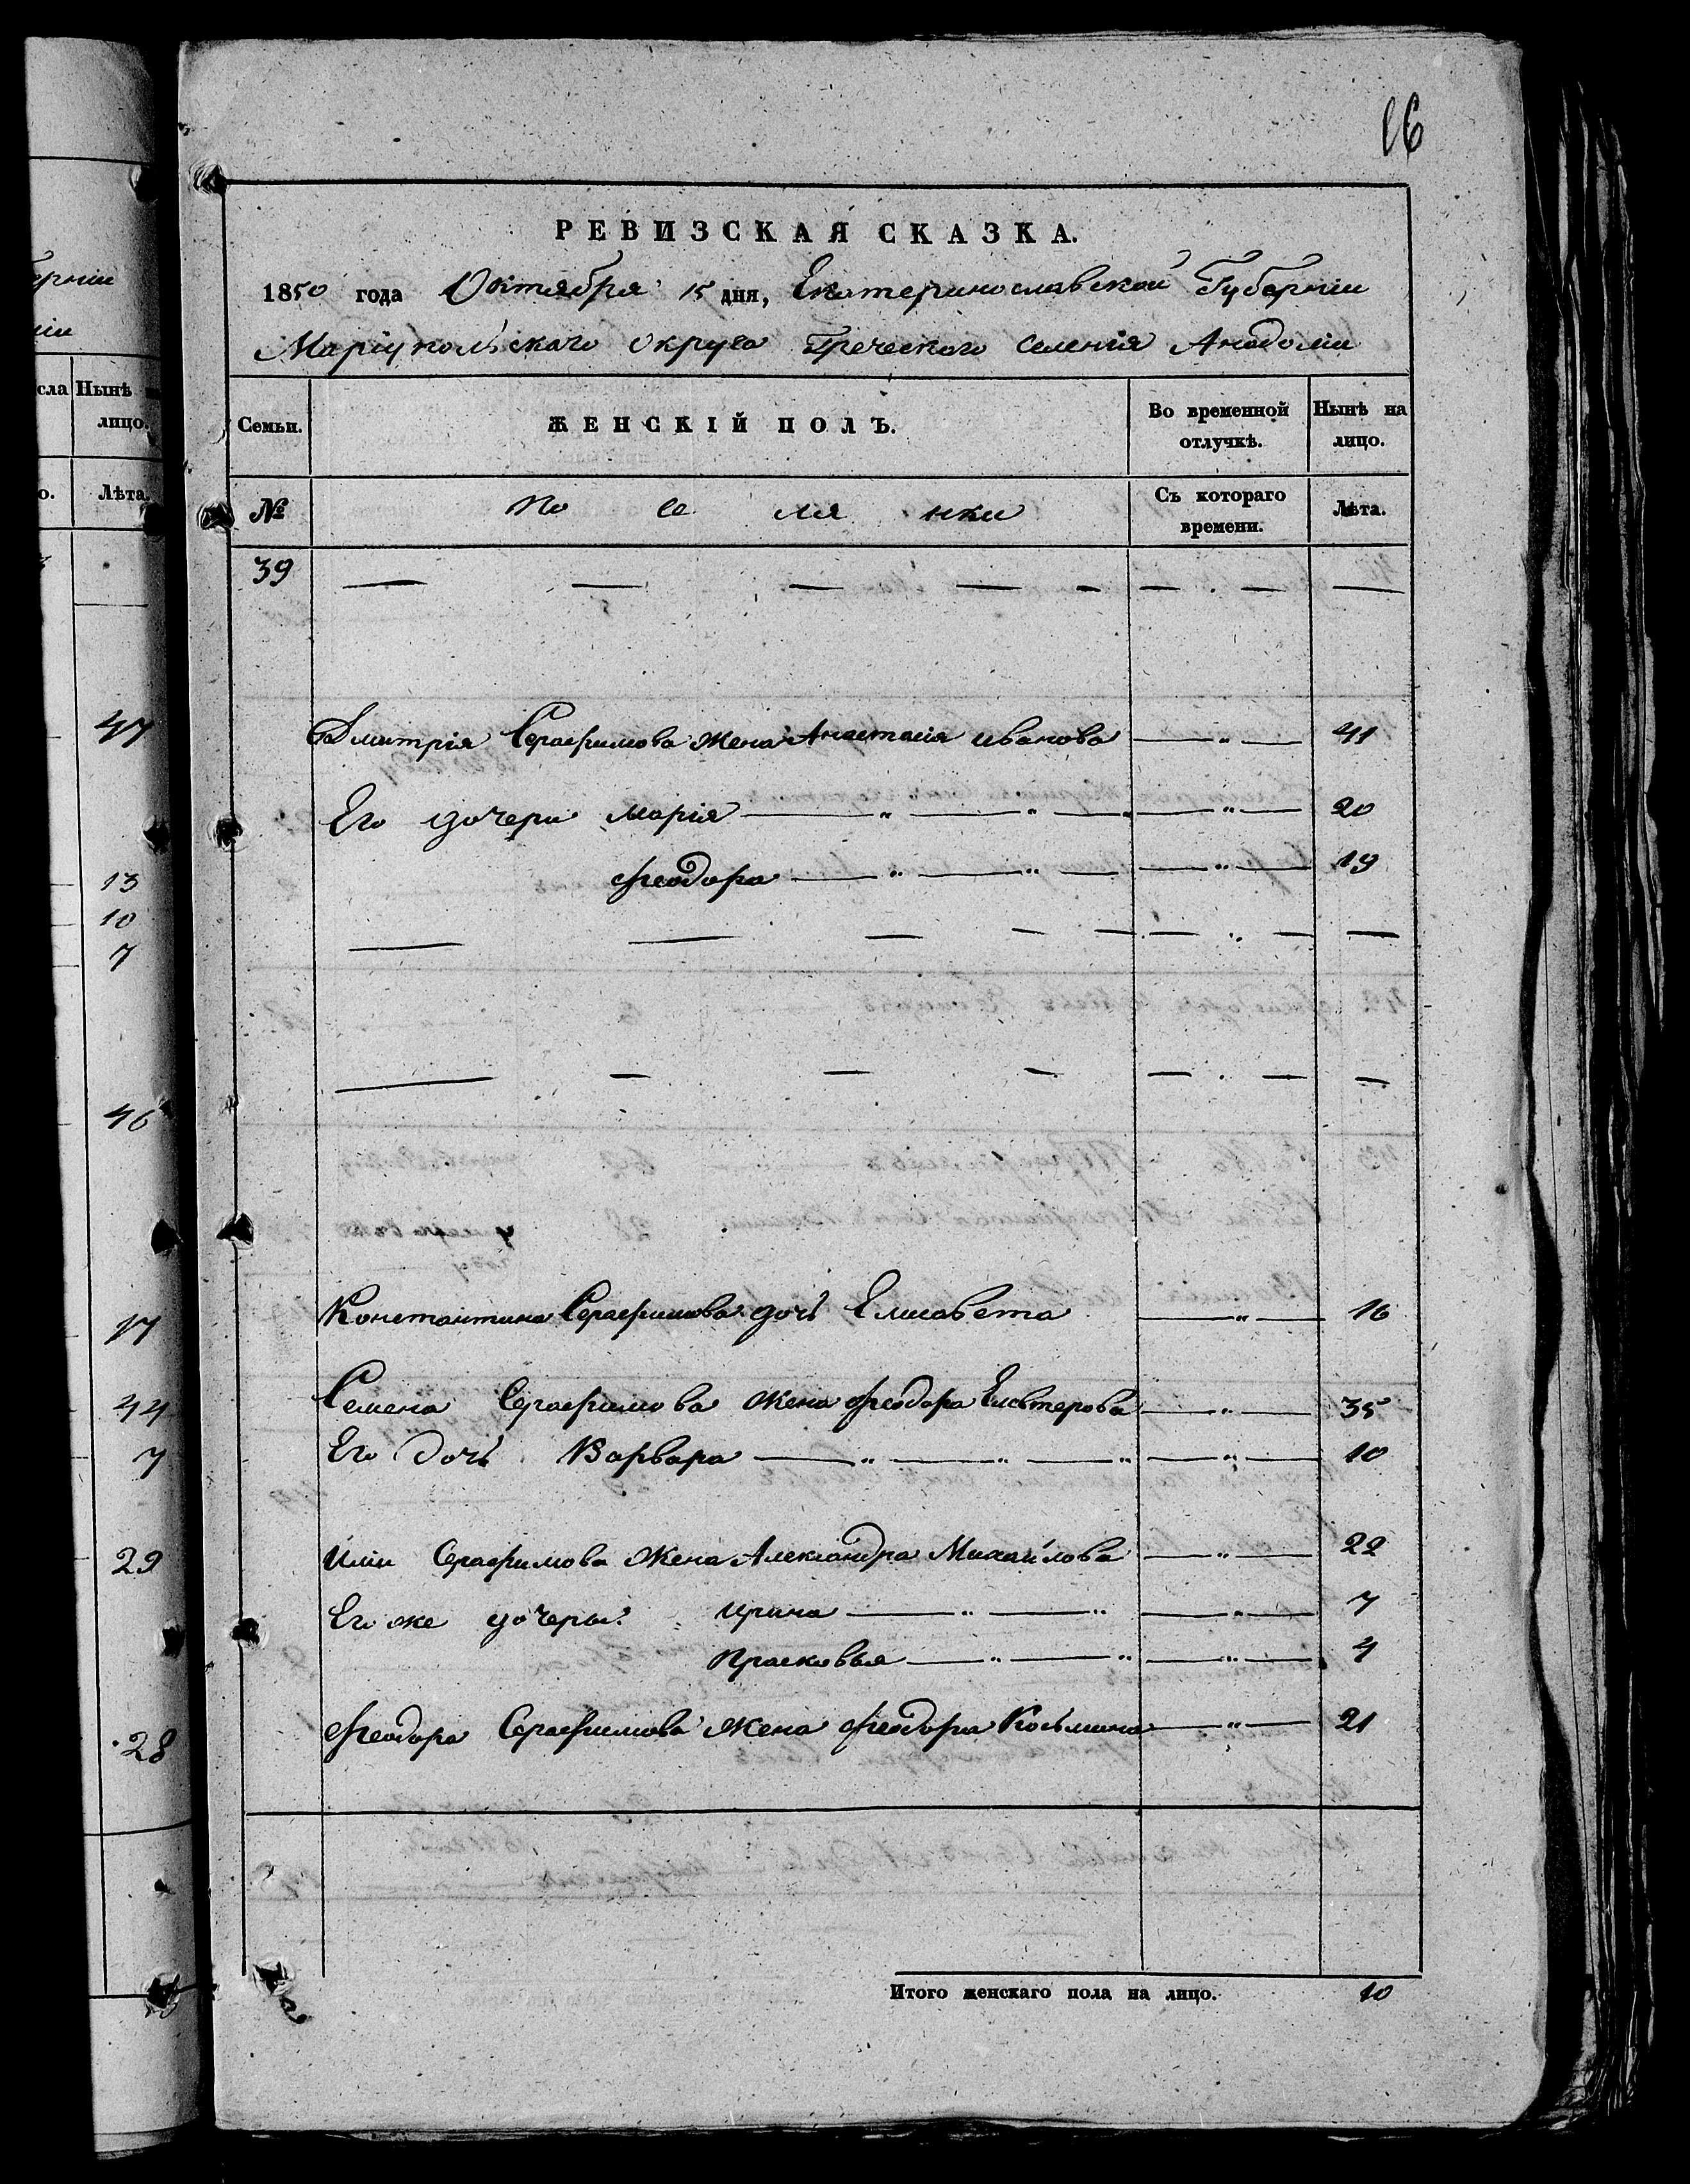 16
РЕВИЗСКАЯ СКАЗКА.
1850 года Октября 15 дня, Екатеринославской Губернiи
Марiупольскаго Округа Греческого селенiя Анадолiи
Семьи. ЖЕНСКIЙ ПОЛЪ. Во временной отлучкѣ. Нынѣ на лицо.
№ По се ля нки Съ котораго времени. Лѣта.
39
Дмитрiя Серафимова жена Анастасiя Иванова 41
Его дочери Марiя 20
Феодора 19
Константина Серафимова дочь Елисавета 16
Семена Серафимова жена Феодора Елевтерова 35
Его дочь Варвара 10
Илiи Серафимова жена Александра Михайлова 22
Его же дочеры: Ирина 7
Прасковья 4
Феодора Серафимова жена Феодора Козьмина 21
Итого женскаго пола на лицо. 10
сла Нынѣ
лицо.
о. Лѣта.
47
13
10
7
46
17
44
7
29
28